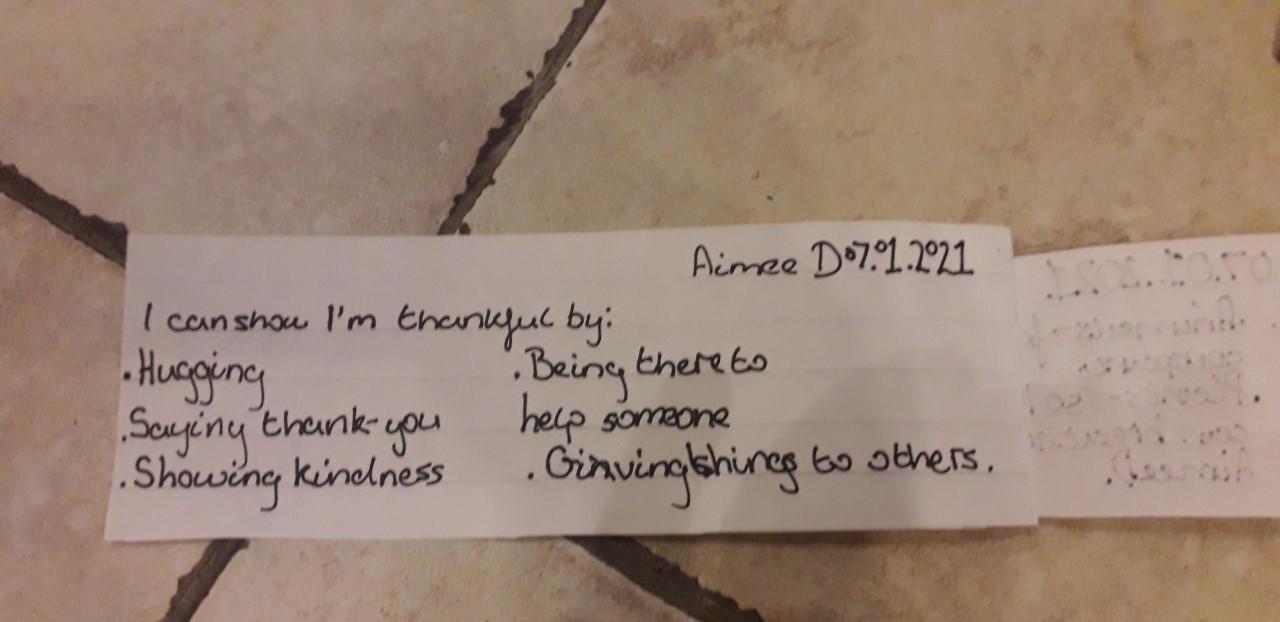 Aimee D 07.01.2021
I can show I'm thankful by:
. Hugging
. Saying thank-you
. Showing kindness
. Being there to
help someone
. Ginving things to others.
07.01.2021
Aimee D.